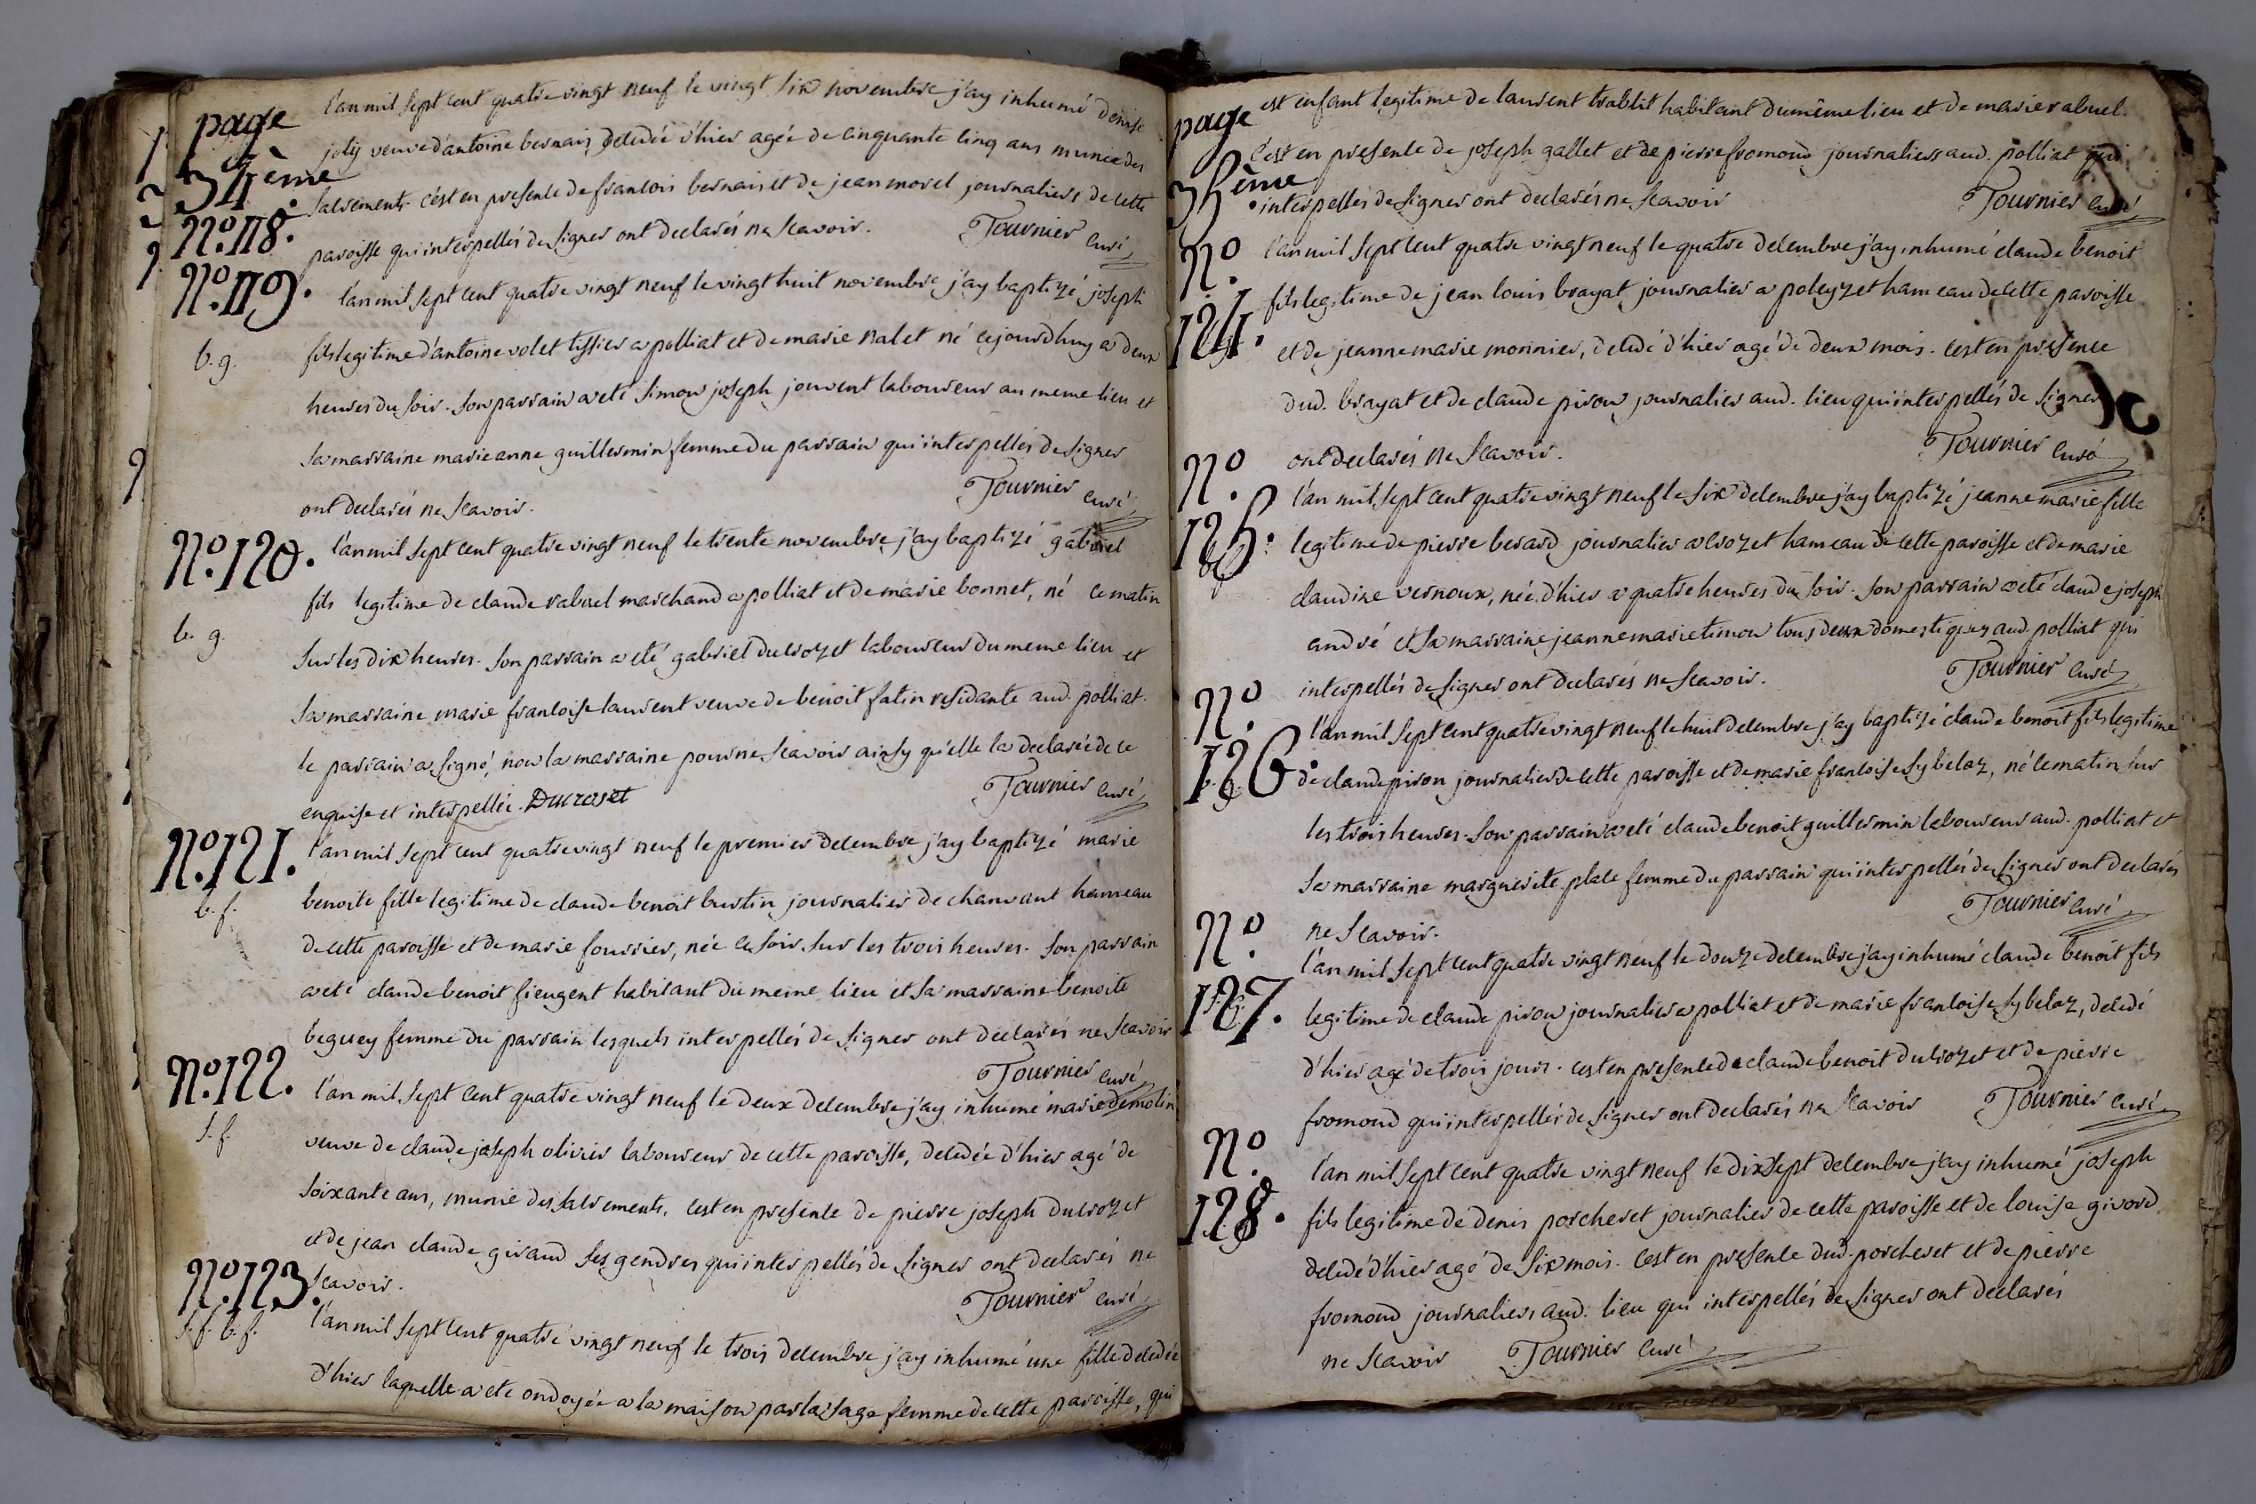 page
34ème
N°.118.
l'an mil sept cent quatre vingt neuf le vingt six novembre j'ay inhumé denise
joly veuve d'antoine bernais decedée d'hier agée de cinquante cinq ans munie des
sacrements. c'est en presence de francois bernais et de jean morel journaliers de cette
paroisse qui interpellés de signer ont declarés ne scavoir. Tournier curé
N°.119.
b. g.
l'an mil sept cent quatre vingt neuf le vingt huit novembre j'ay baptizé joseph
fils legitime d'antoine volet tissier a polliat et de marie nalet né cejourd'huy a deux
heures du soir. son parrain a eté simon joseph jouvent laboureur au meme lieu et
sa marraine marie anne guillermin femme du parrain qui interpellés de signer
ont declarés ne scavoir. Tournier curé
N°.120.
b. g.
l'an mil sept cent quatre vingt neuf le trente novembre j'ay baptizé gabriel
fils legitime de claude rabuel marchand a polliat et de marie bonnet, né ce matin
sur les dix heures. son parrain a eté gabriel ducrozet laboureur du meme lieu et
sa marraine marie francoise laurent veuve de benoit fatin residante aud. polliat.
le parrain a signé, non la marraine pour ne scavoir ainsy qu'elle la declaré de ce
enquise et interpellée. Ducroset Tournier curé
N°.121.
b. f.
l'an mil sept cent quatre vingt neuf le premier decembre j'ay baptizé marie
benoite fille legitime de claude benoit burtin journalier de chanvant hameau
de cette paroisse et de marie fourrier, née ce soir sur les trois heures. son parrain
a eté claude benoit fieugent habitant du meme lieu et sa marraine benoite
beguey femme du parrain lesquels interpellés de signer ont declarés ne scavoir
Tournier curé
N°.122.
s. f.
l'an mil sept cent quatre vingt neuf le deux decembre j'ay inhumé marie demolin
veuve de claude joseph olivier laboureur de cette paroisse, decedée d'hier agé de
soixante ans, munie des sacrements. c'est en presence de pierre joseph ducrozet
et de jean claude giraud ses gendres qui interpellés de signer ont declarés ne
scavoir. Tournier curé
N°.123.
s. f. b. f.
l'an mil sept cent quatre vingt neuf le trois decembre j'ay inhumé une fille decedée
d'hier laquelle a eté ondoyée a la maison par la sage femme de cette paroisse, qui
page
35ème
est enfant legitime de laurent trablit habitant du même lieu et de marie rabuel.
c'est en presence de joseph gallet et de pierre fromond journaliers aud. polliat qui
interpellés de signer ont declarés ne scavoir Tournier curé
N°.
124.
l'an mil sept cent quatre vingt neuf le quatre decembre j'ay inhumé claude benoit
fils legitime de jean louis brayat journalier a poleyzet hameau de cette paroisse
et de jeanne marie monnier, decedé d'hier agé de deux mois. c'est en presence
dud. brayat et de claude pirou journalier aud. lieu qui interpellés de signer
ont declarés ne scavoir. Tournier curé
N°.
125.
bf
l'an mil sept cent quatre vingt neuf le six decembre j'ay baptizé jeanne marie fille
legitime de pierre berard journalier a crozet hameau de cette paroisse et de marie
claudine vernoux, née d'hier a quatre heures du soir. son parrain a eté claude joseph
andré et sa marraine jeanne marie timon tous deux domestiques aud. polliat qui
interpellés de signer ont declarés ne scavoir. Tournier curé
N°.
126.
b. g.
l'an mil sept cent quatre vingt neuf le huit decembre j'ay baptizé claude benoit fils legitime
de claude piron journalier de cette paroisse et de marie francoise sybelaz, né ce matin sur
les trois heures. son parrain a eté claude benoit guillermin laboureur aud. polliat et
sa marraine marguerite place femme du parrain qui interpellés de signer ont declarés
ne scavoir. Tournier curé
N°.
127.
l'an mil sept cent quatre vingt neuf le douze decembre j'ay inhumé claude benoit fils
legitime de claude pirou journalier a polliat et de marie francoise sybelaz, decedé
d'hier agé de trois jours. c'est en presence de claude benoit ducrozet et de pierre
fromond qui interpellés de signer ont declarés ne scavoir Tournier curé
N°.
128.
l'an mil sept cent quatre vingt neuf le dix sept decembre j'ay inhumé joseph
fils legitime de denis porcheret journalier de cette paroisse et de louise givord
decedé d'hier agé de six mois. c'est en presence dud. porcheret et de pierre
fromond journaliers aud. lieu qui interpellés de signer ont declarés
ne scavoir Tournier curé